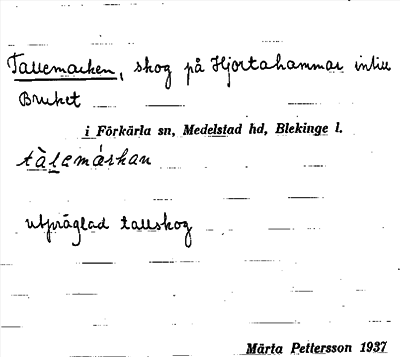 Tallemarken, skog på Hjortahammar intill
Bruket
i Förkärla sn, Medelstad hd, Blekinge l.
tàlemárkan
utpräglad tallskog
Märta Pettersson 1937